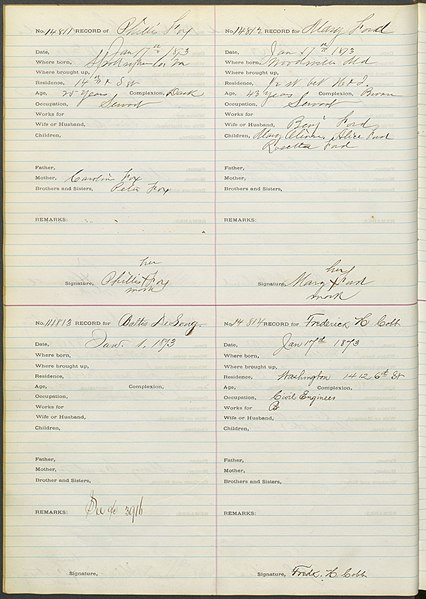 No. 14811 RECORD of Phillis Fox
Date, Jan 17th 1873
Where born,
Where brought up,
Residence, 14th & S st
Age, 25 years Complexion, Dark
Occupation, Servant
Works for
Wife or Husband,
Children,
Father,
Mother, Caroline Fox
Brothers and Sisters, Peter Fox
REMARKS:
her
Signature, Phillis + Fox
mark
No. 14812 RECORD for Mary Ford
Date, Jan 17th 1873
Where born, Woodville Md
Where brought up,
Residence,
Age, 43 years Complexion, Brown
Occupation, Servant
Works for
Wife or Husband, Benj Ford
Children, Mary Alice Ford
Rosetta Ford
Father,
Mother,
Brothers and Sisters,
REMARKS:
her
Signature, Mary + Ford
mark
No. 14813 RECORD for
Date, 1873
Where born,
Where brought up,
Residence,
Age, Complexion,
Occupation,
Works for
Wife or Husband,
Children,
Father,
Mother,
Brother and Sisters,
REMARKS:
Signature,
No. 14814 RECORD for Frederick K Cobb
Date, Jan 17th 1873
Where born,
Where brought up,
Residence, Washington 1412 6th St
Age, Complexion,
Occupation, Civil Engineer
Works for
Wife or Husband,
Children,
Father,
Mother,
Brothers and Sisters,
REMARKS:
Signature, Fredk. K. Cobb